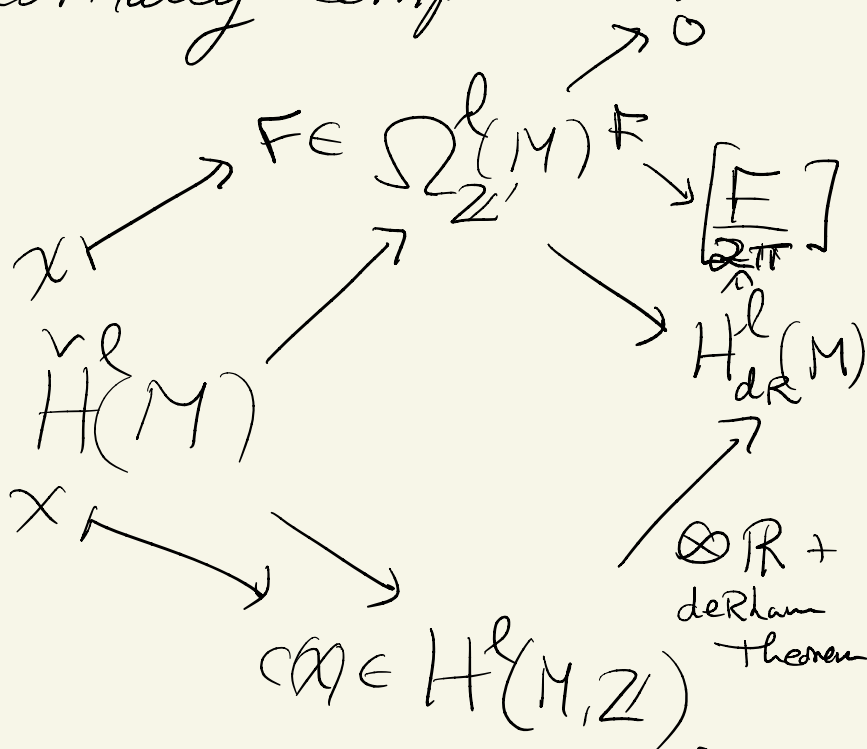 0
F ∈ Ω^l_ℤ(M) F
[F/2π]
χ
Ȟ^l(M)
H^l_dR(M)
χ
⊗ ℝ +
deRham
Theorem
c(χ) ∈ H^l(M, ℤ)